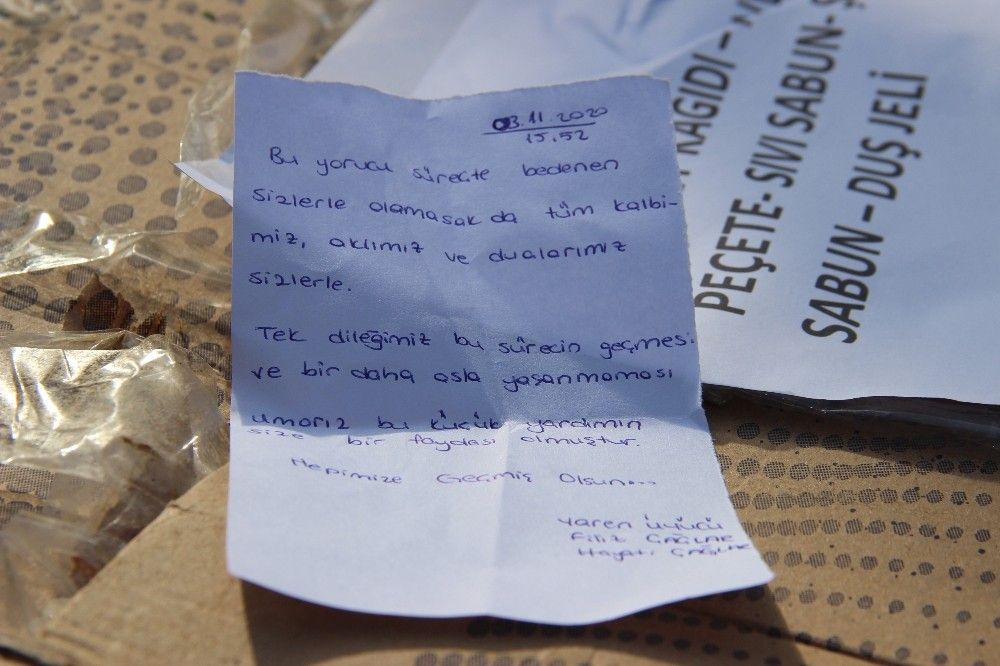 03.11.2020
15.52
Bu yorucu süreçte bedenen
sizlerle olamasak da tüm kalbi-
miz, aklımız ve dualarımız
sizlerle.
Tek dileğimiz bu sürecin geçmesi
ve bir daha asla yaşanmaması
umarız bu küçük yardımın
size bir faydası olmuştur.
Hepimize Geçmiş Olsun...
Yaren
Filiz ÇAĞLAR
Hayati ÇAĞLAR
KAGIDI –
PEÇETE- SIVI SABUN-
SABUN – DUŞ JELİ